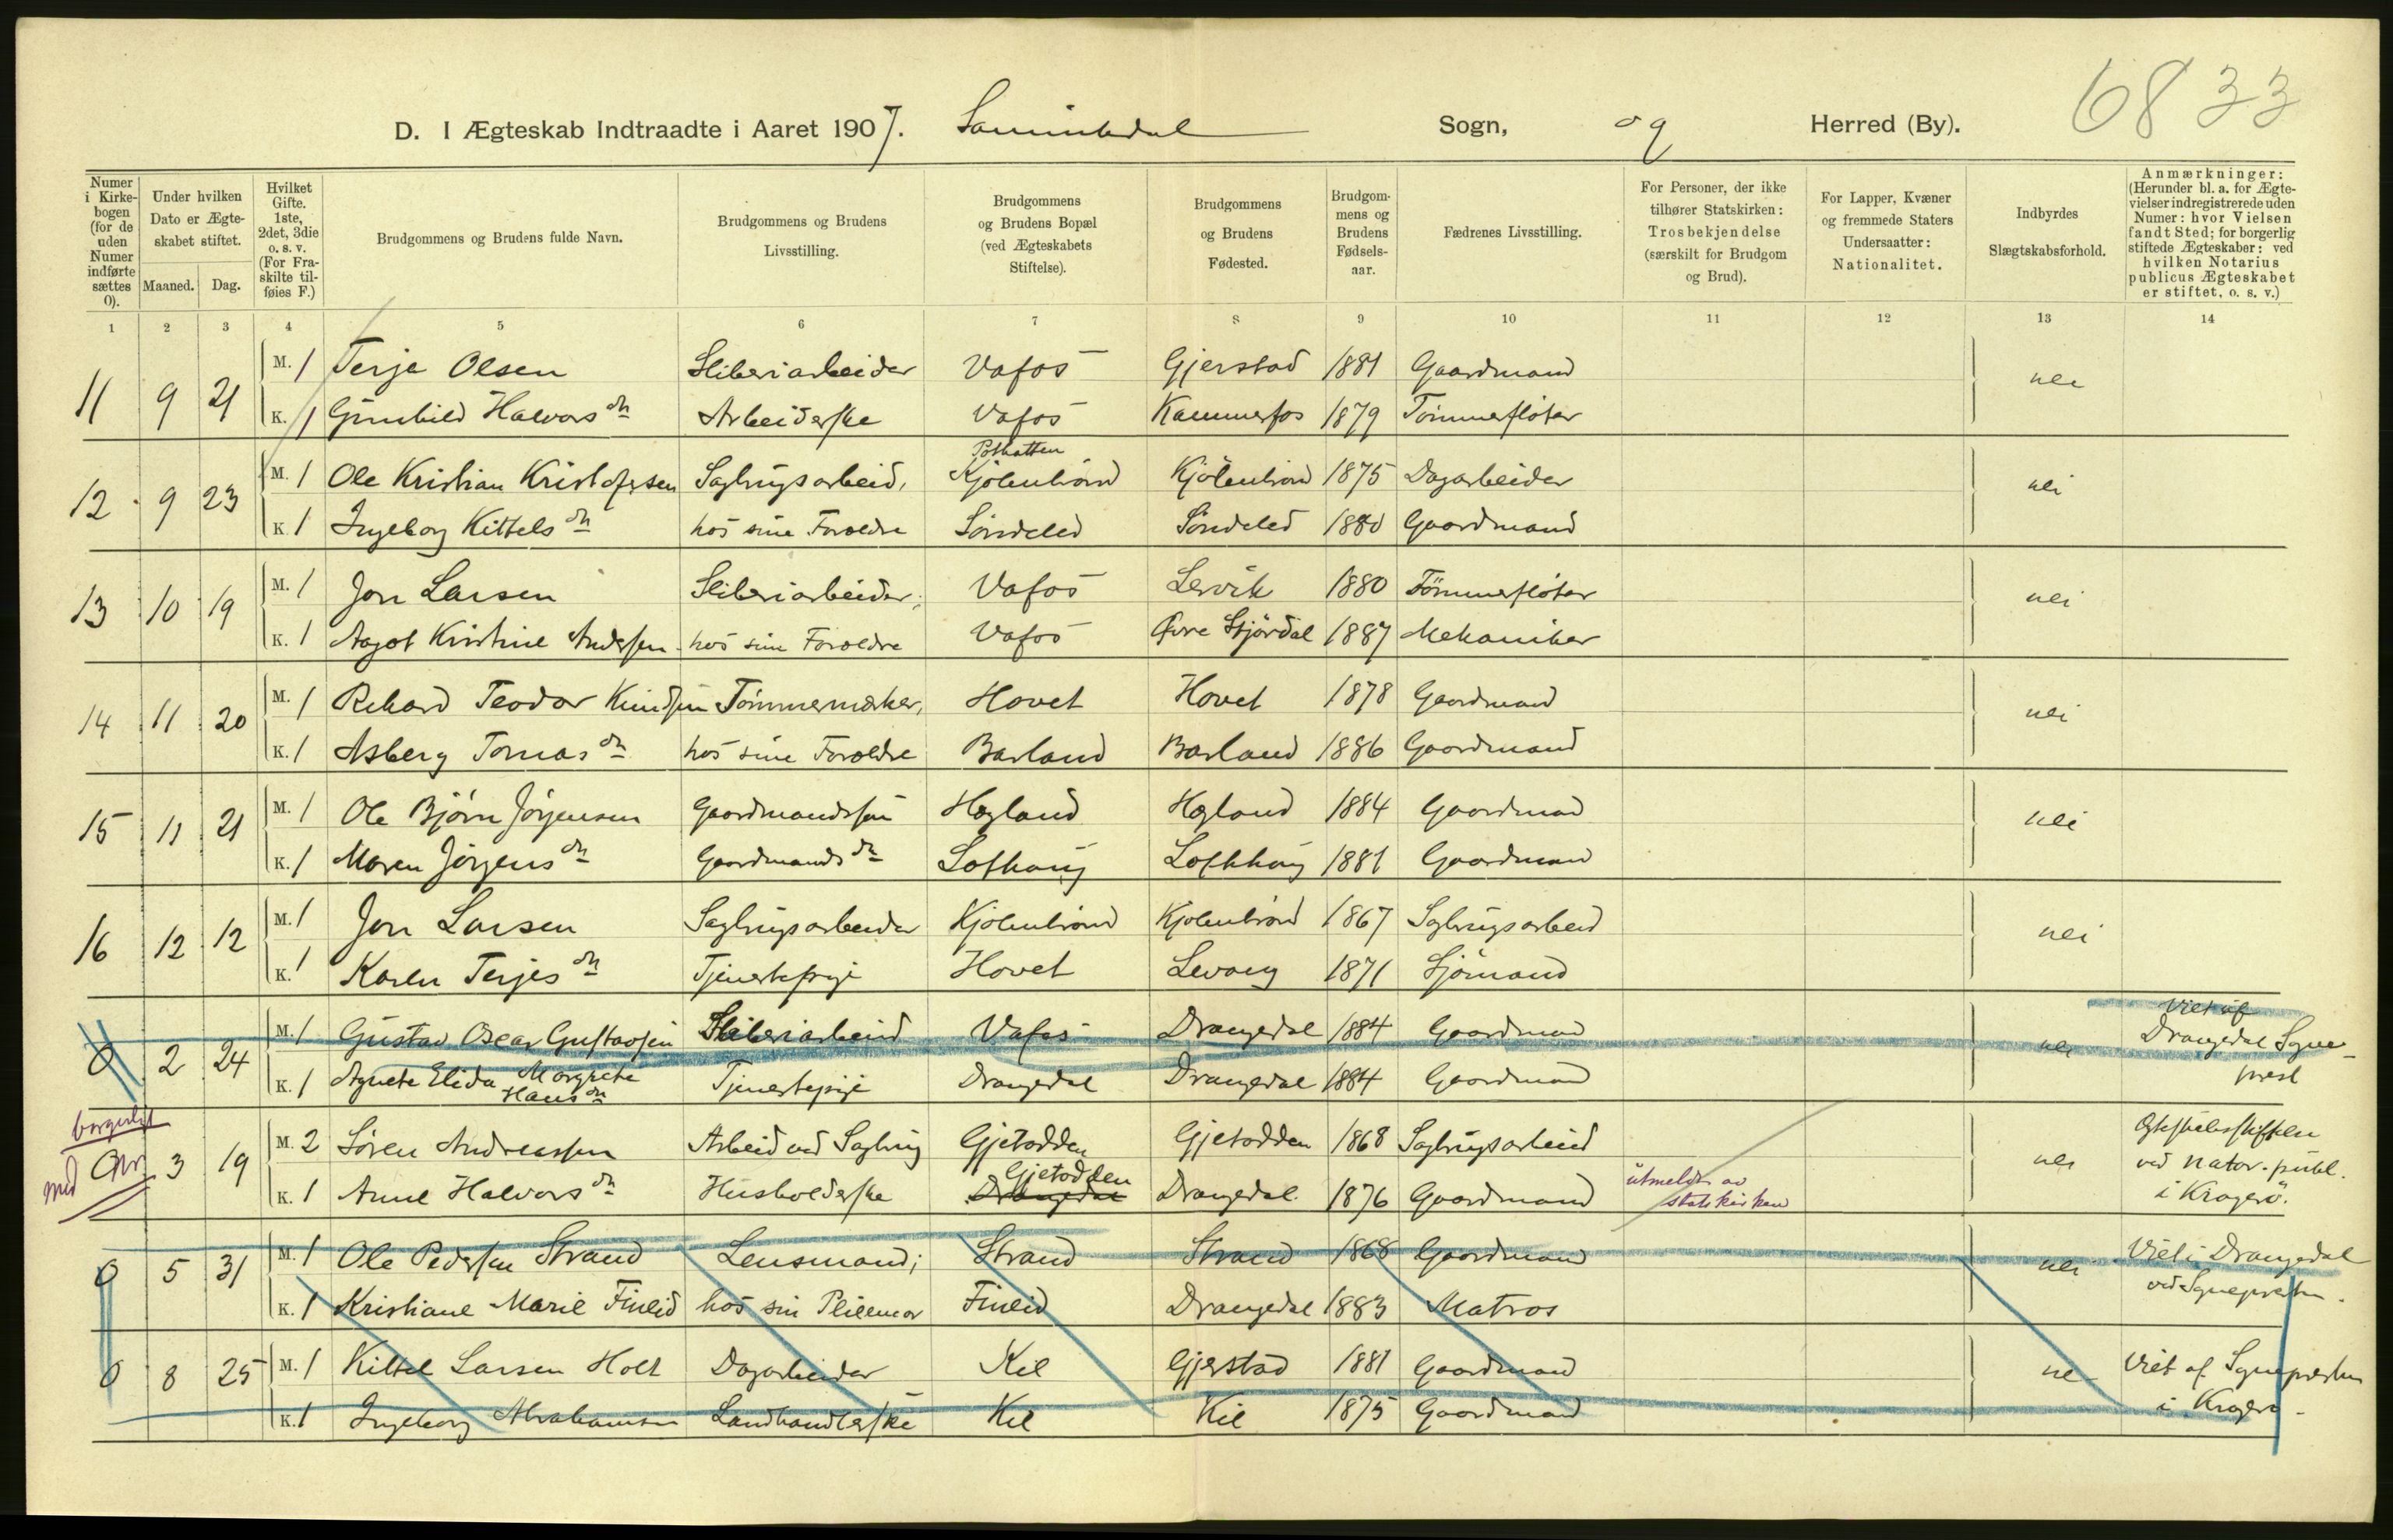 6833
D. I Ægteskab Indtraadte i Aaret 1907. Sannikedal Sogn, og Herred (By).
Numer i Kirkebogen (for de uden Numer indførte sættes 0).
Under hvilken Dato er Ægteskabet stiftet.
Maaned. Dag.
Hvilket Gifte. 1ste, 2det, 3die o. s. v. (For Fraskilte tilføies F.)
Brudgommens og Brudens fulde Navn.
Brudgommens og Brudens Livsstilling.
Brudgommens og Brudens Bopæl (ved Ægteskabets Stiftelse).
Brudgommens og Brudens Fødested.
Brudgommens og Brudens Fødselsaar.
Fædrenes Livsstilling.
For Personer, der ikke tilhører Statskirken: Trosbekjendelse (særskilt for Brudgom og Brud).
For Lapper, Kvæner og fremmede Staters Undersaatter: Nationalitet.
Indbyrdes Slægtskabsforhold.
Anmærkninger: (Herunder bl. a. for Ægtevielser indregistrerede uden Numer: hvor Vielsen fandt Sted; for borgerlig stiftede Ægteskaber: ved hvilken Notarius publicus Ægteskabet er stiftet, o. s. v.)
1 2 3 4 5 6 7 8 9 10 11 12 13 14
11 9 21 M. 1 Terje Olsen Sliberiarbeider Vafos Gjerstad 1881 Gaardmand nei
K. 1 Gunhild Halvorsdn Arbeiderske Vafos Kammerfos 1879 Tømmerfløter
12 9 23 M. 1 Ole Kristian Kristofersen Sagbrugsarbeid. Pothatten Kjølenbrønd Kjølenbrønd 1875 Dagarbeider nei
K. 1 Ingeborg Kittelsdn hos sine Forældre Søndeled Søndeled 1880 Gaardmand
13 10 19 M. 1 Jon Larsen Sliberiarbeider. Vafos Lervik 1880 Tømmerfløter nei
K. 1 Aagot Kristine Andersen hos sine Forældre Vafos Øvre Stjørdal 1887 Mekaniker
14 11 20 M. 1 Rikard Teodor Knudsen Tømmermerker, Hovet Hovet 1878 Gaardmand nei
K. 1 Asberg Tomasdn hos sine Forældre Barland Barland 1886 Gaardmand
15 11 21 M. 1 Ole Bjørn Jørgensen Gaardmandssøn Hegland Hegland 1884 Gaardmand nei
K. 1 Maren Jørgensdn Gaardmandsdn Lofthaug Lofthaug 1881 Gaardmand
16 12 12 M. 1 Jon Larsen Sagbrugsarbeider Kjølenbrønd Kjølenbrønd 1867 Sagbrugsarbeid nei
K. 1 Karen Terjesdn Tjenestepige Hovet Levang 1871 Sjømand
0 2 24 M. 1 Gustav Oscar Gustavsen Sliberiarbeid Vafos Drangedal 1884 Gaardmand nei Viet af Drangedal Sogneprest
K. 1 Agnete Elida Margrete Hansdn Tjenestepige Drangedal Drangedal 1884 Gaardmand
borgerligt med 3 19 M. 2 Søren Andreassen Arbeid ved Sagbrug Gjetodden Gjetodden 1868 Sagbrugsarbeid nei
K. 1 Anne Halvorsdn Husholderske Gjetodden Drangedal Drangedal. 1876 Gaardmand utmeldt av statskirken ved Notar. publ. i Kragerø.
0 5 31 M. 1 Ole Pedersen Strand Lensmand; Strand Strand 1868 Gaardmand nei Viet i Drangedal ved Sognepresten.
K. 1 Kristiane Marie Finlid hos sin Pleiemor Finlid Drangedal 1883 Matros
0 8 25 M. 1 Kittel Larsen Holt Dagarbeider Kil Gjerstad 1881 Gaardmand nei Viet af Sognepresten i Kragerø.
K. 1 Ingeborg Abrahamsen Landhandlerske Kil Kil 1875 Gaardmand